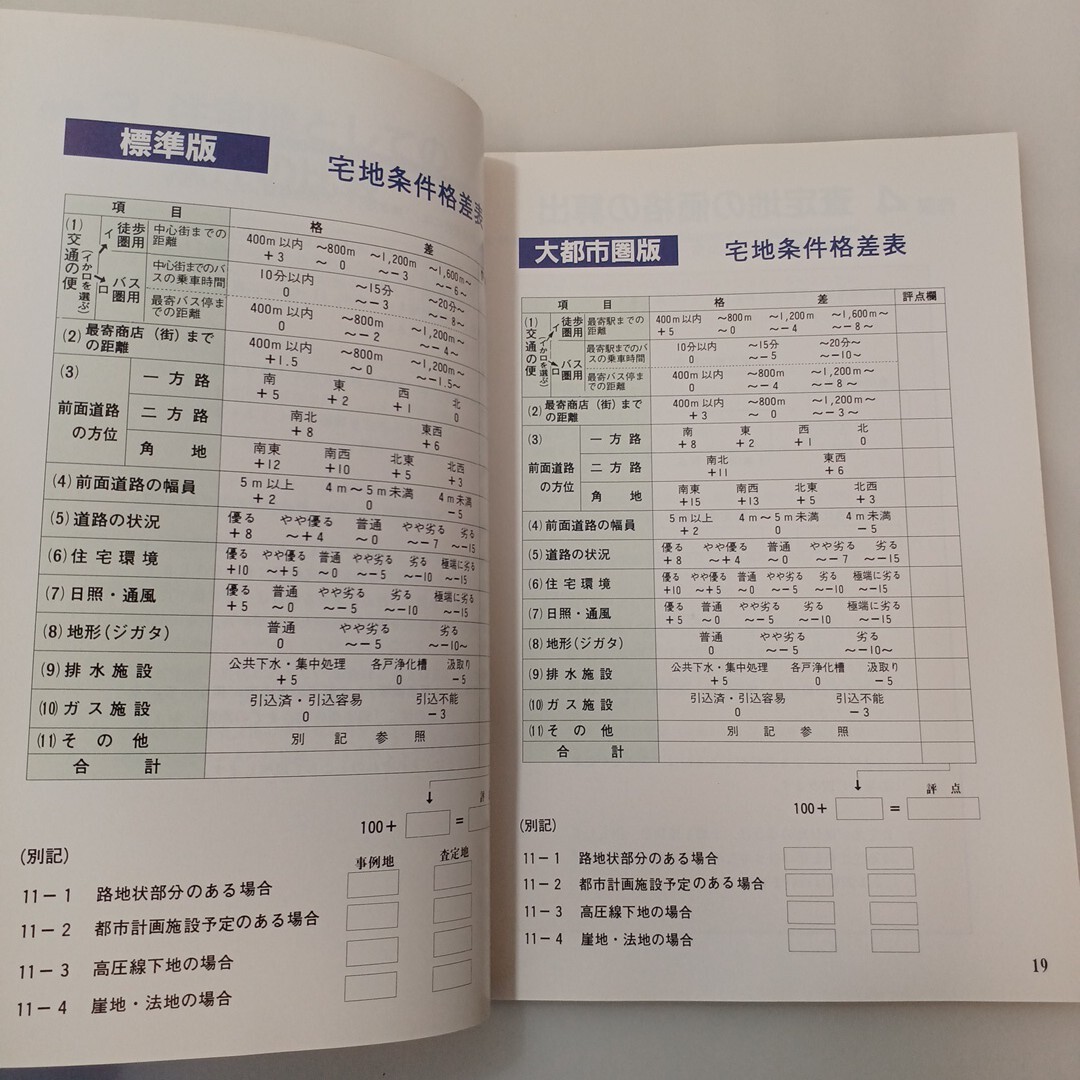 標準版
宅地条件格差表
項 目 格 差
(1)交通の便 (イかロを選ぶ)
イ 徒歩圏用 中心街までの距離 400m以内 ～800m ～1,200m ～1,600m～
+3 ～ 0 ～－3 ～－6～
ロ バス圏用 中心街までのバスの乗車時間 10分以内 ～15分 ～20分～
0 ～－3 ～－8～
最寄バス停までの距離 400m以内 ～800m ～1,200m～
0 ～－2 ～－4～
(2)最寄商店（街）までの距離 400m以内 ～800m ～1,200m～
+1.5 ～0 ～－1.5～
(3)前面道路の方位
一方路 南 東 西 北
+5 +2 +1 0
二方路 南北 東西
+8 +6
角地 南東 南西 北東 北西
+12 +10 +5 +3
(4)前面道路の幅員 5m以上 4m～5m未満 4m未満
+2 0 －5
(5)道路の状況 優る やや優る 普通 やや劣る 劣る
+8 ～+4 ～0 ～－7 ～－15
(6)住宅環境 優る やや優る 普通 やや劣る 劣る 極端に劣る
+10 ～+5 ～0 ～－5 ～－10 ～－15
(7)日照・通風 優る 普通 やや劣る 劣る 極端に劣る
+5 ～0 ～－5 ～－10 ～－15
(8)地形(ジガタ) 普通 やや劣る 劣る
0 ～－5 ～－10～
(9)排水施設 公共下水・集中処理 各戸浄化槽 汲取り
+5 0 －5
(10)ガス施設 引込済・引込容易 引込不能
0 －3
(11)その他 別記参照
合計
100+ =
(別記)
事例地 査定地
11－1 路地状部分のある場合
11－2 都市計画施設予定のある場合
11－3 高圧線下地の場合
11－4 崖地・法地の場合
大都市圏版
宅地条件格差表
項 目 格 差 評点欄
(1)交通の便 (イかロを選ぶ)
イ 徒歩圏用 最寄駅までの距離 400m以内 ～800m ～1,200m ～1,600m～
+5 ～0 ～－4 ～－8～
ロ バス圏用 最寄駅までのバスの乗車時間 10分以内 ～15分 ～20分～
0 ～－5 ～－10～
最寄バス停までの距離 400m以内 ～800m ～1,200m～
0 ～－4 ～－8～
(2)最寄商店（街）までの距離 400m以内 ～800m ～1,200m～
+3 ～ 0 ～－3～
(3)前面道路の方位
一方路 南 東 西 北
+8 +2 +1 0
二方路 南北 東西
+11 +6
角地 南東 南西 北東 北西
+15 +13 +5 +3
(4)前面道路の幅員 5m以上 4m～5m未満 4m未満
+2 0 －5
(5)道路の状況 優る やや優る 普通 やや劣る 劣る
+8 ～+4 ～0 ～－7 ～－15
(6)住宅環境 優る やや優る 普通 やや劣る 劣る 極端に劣る
+10 ～+5 ～0 ～－5 ～－10 ～－15
(7)日照・通風 優る 普通 やや劣る 劣る 極端に劣る
+5 ～0 ～－5 ～－10 ～－15
(8)地形(ジガタ) 普通 やや劣る 劣る
0 ～－5 ～－10～
(9)排水施設 公共下水・集中処理 各戸浄化槽 汲取り
+5 0 －5
(10)ガス施設 引込済・引込容易 引込不能
0 －3
(11)その他 別記参照
合計
評点
100+ =
(別記)
11－1 路地状部分のある場合
11－2 都市計画施設予定のある場合
11－3 高圧線下地の場合
11－4 崖地・法地の場合
19